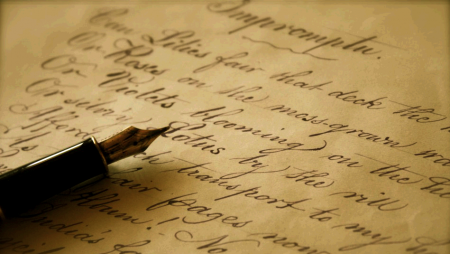 Impromptu.
Can Lilies fair that deck the
Or Roses on the moss-grown
Or Violets blooming on the
Or silv'ry Lotus by the rill
Afford transport to my
your pages
Album! No
India's